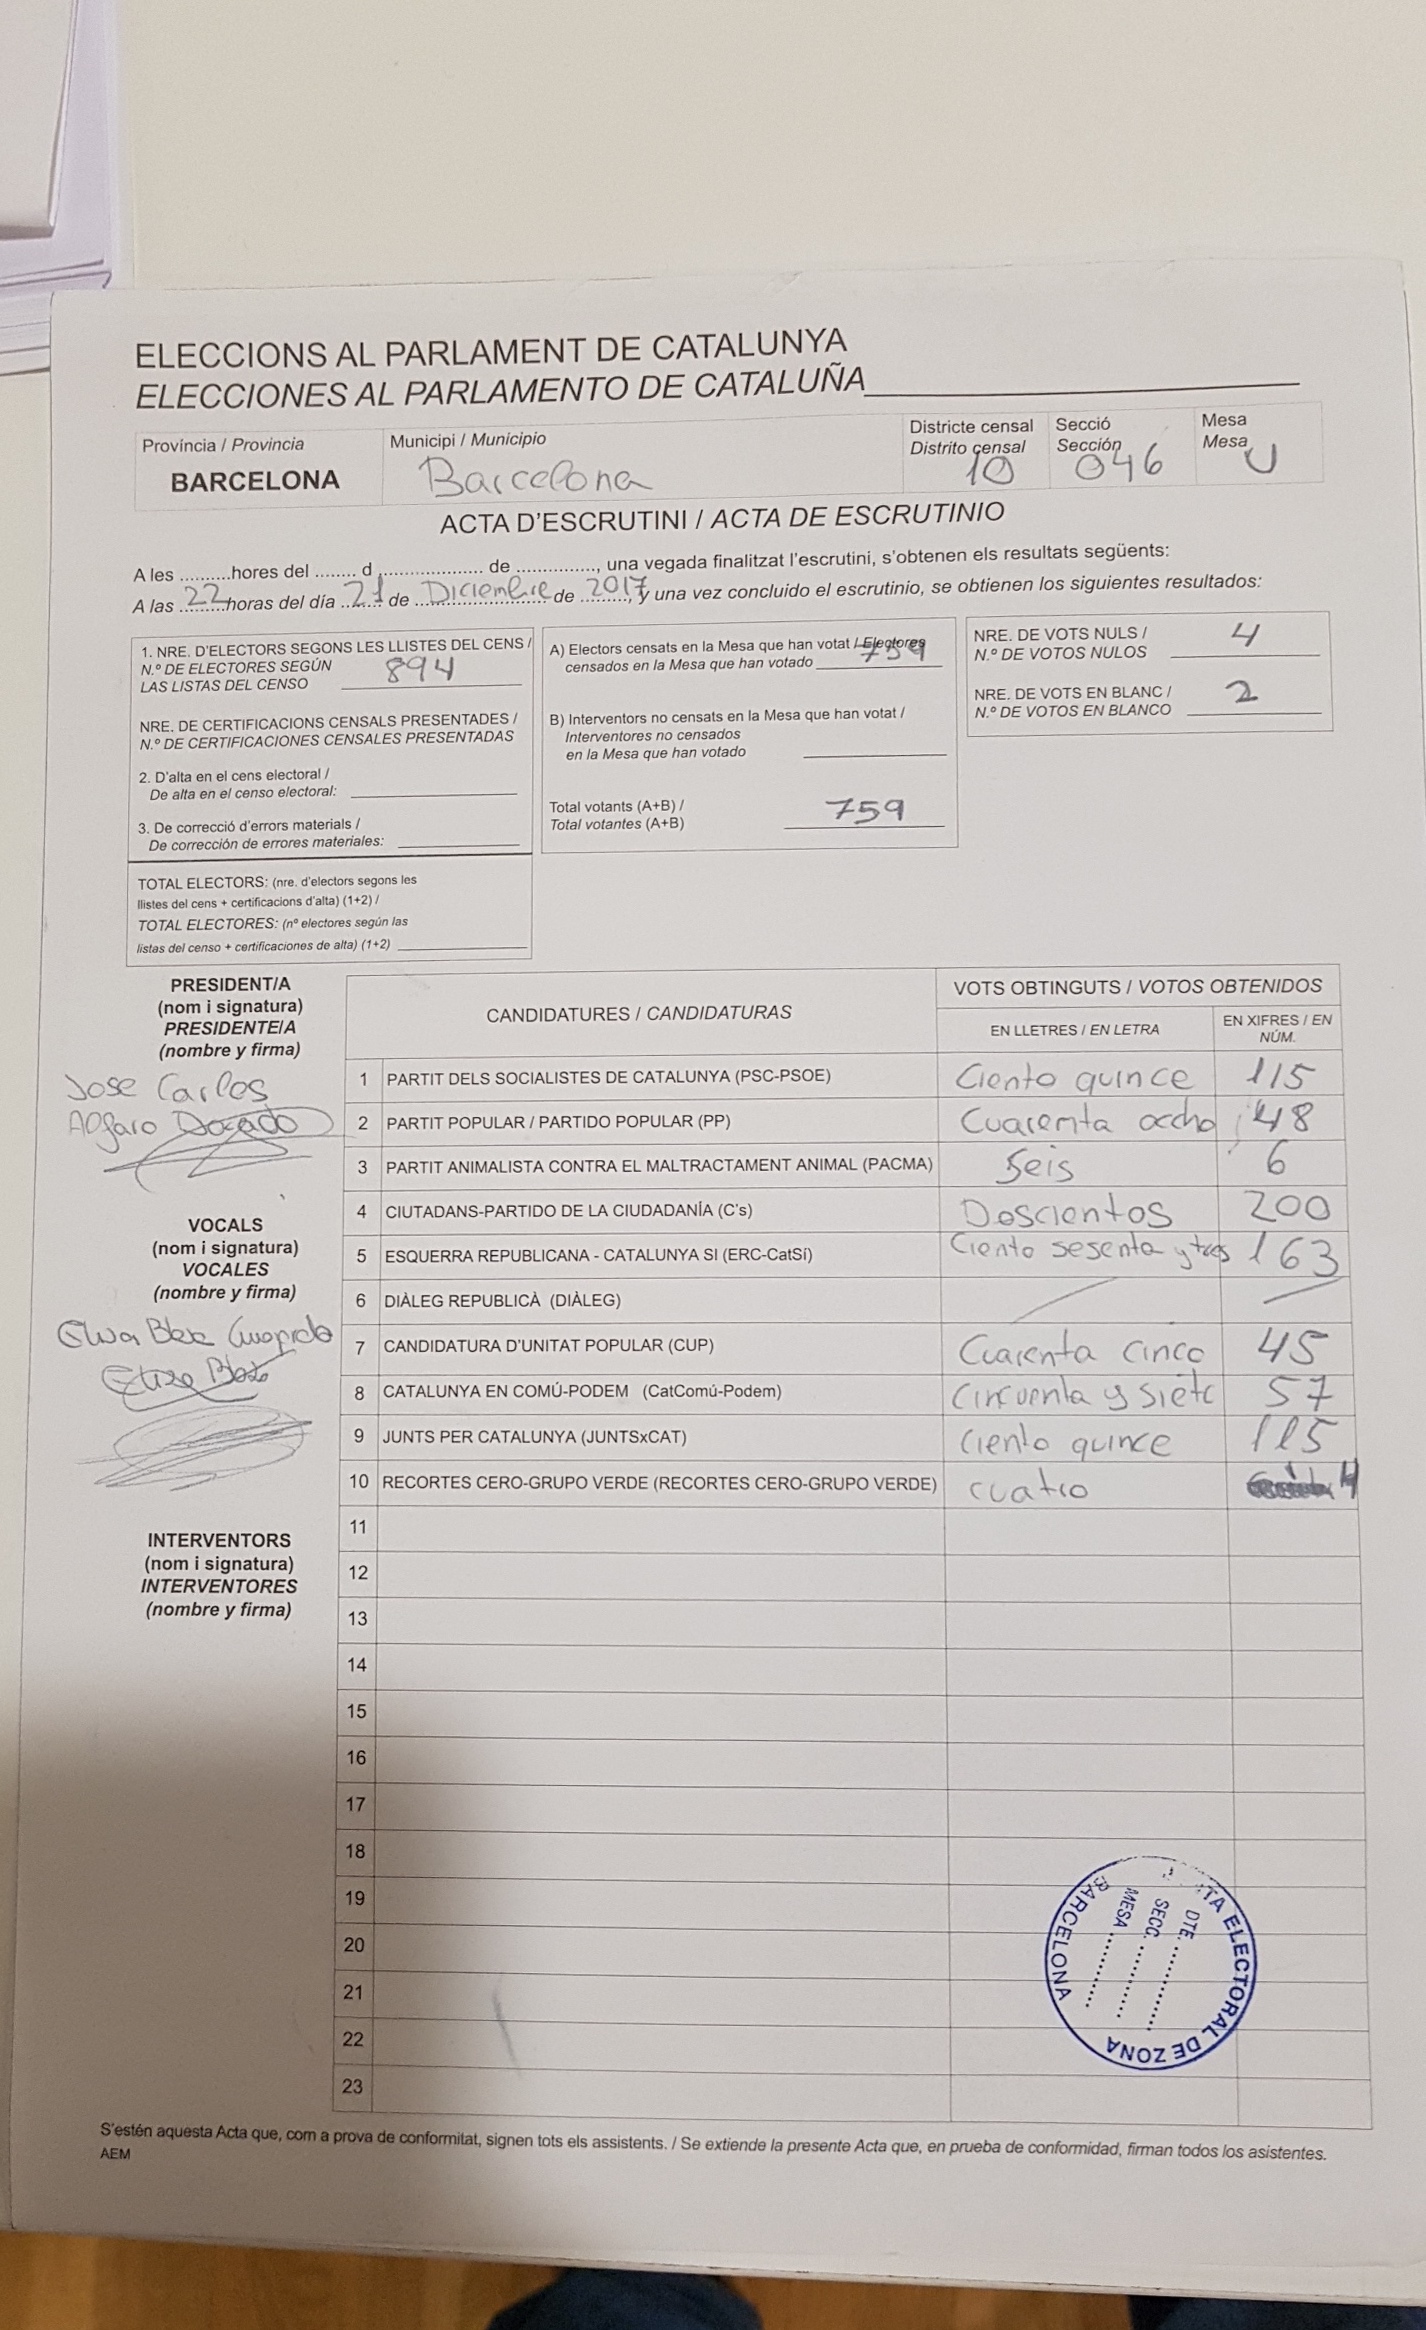 ELECCIONS AL PARLAMENT DE CATALUNYA
ELECCIONES AL PARLAMENTO DE CATALUÑA
Província / Provincia
BARCELONA
Municipi / Municipio
Barcelona
Districte censal
Distrito censal
10
Secció
Sección
046
Mesa
Mesa
U
ACTA D'ESCRUTINI / ACTA DE ESCRUTINIO
A les ..........hores del ........ d .................... de ..............., una vegada finalitzat l'escrutini, s'obtenen els resultats següents:
A las 22 horas del día 21 de Diciembre de 2017, y una vez concluido el escrutinio, se obtienen los siguientes resultados:
1. NRE. D'ELECTORS SEGONS LES LLISTES DEL CENS /
N.º DE ELECTORES SEGÚN
LAS LISTAS DEL CENSO 894
NRE. DE CERTIFICACIONS CENSALS PRESENTADES /
N.º DE CERTIFICACIONES CENSALES PRESENTADAS
2. D'alta en el cens electoral /
De alta en el censo electoral:
3. De correcció d'errors materials /
De corrección de errores materiales:
TOTAL ELECTORS: (nre. d'electors segons les
llistes del cens + certificacions d'alta) (1+2) /
TOTAL ELECTORES: (nº electores según las
listas del censo + certificaciones de alta) (1+2)
A) Electors censats en la Mesa que han votat / Electores
censados en la Mesa que han votado 759
B) Interventors no censats en la Mesa que han votat /
Interventores no censados
en la Mesa que han votado
Total votants (A+B) /
Total votantes (A+B) 759
NRE. DE VOTS NULS /
N.º DE VOTOS NULOS 4
NRE. DE VOTS EN BLANC /
N.º DE VOTOS EN BLANCO 2
PRESIDENT/A
(nom i signatura)
PRESIDENTE/A
(nombre y firma)
Jose Carlos
Alfaro Dorado
VOCALS
(nom i signatura)
VOCALES
(nombre y firma)
INTERVENTORS
(nom i signatura)
INTERVENTORES
(nombre y firma)
CANDIDATURES / CANDIDATURAS
VOTS OBTINGUTS / VOTOS OBTENIDOS
EN LLETRES / EN LETRA
EN XIFRES / EN
NÚM.
1 PARTIT DELS SOCIALISTES DE CATALUNYA (PSC-PSOE) Ciento quince 115
2 PARTIT POPULAR / PARTIDO POPULAR (PP) Cuarenta ocho 48
3 PARTIT ANIMALISTA CONTRA EL MALTRACTAMENT ANIMAL (PACMA) Seis 6
4 CIUTADANS-PARTIDO DE LA CIUDADANÍA (C's) Doscientos 200
5 ESQUERRA REPUBLICANA - CATALUNYA SI (ERC-CatSí) Ciento sesenta y tres 163
6 DIÀLEG REPUBLICÀ (DIÀLEG)
7 CANDIDATURA D'UNITAT POPULAR (CUP) Cuarenta cinco 45
8 CATALUNYA EN COMÚ-PODEM (CatComú-Podem) Cincuenta y siete 57
9 JUNTS PER CATALUNYA (JUNTSxCAT) Ciento quince 115
10 RECORTES CERO-GRUPO VERDE (RECORTES CERO-GRUPO VERDE) cuatro 4
11
12
13
14
15
16
17
18
19
20
21
22
23
TA ELECTORAL DE ZONA
BARCELONA
DTE. ..........
SECC. ..........
MESA ..........
S'estén aquesta Acta que, com a prova de conformitat, signen tots els assistents. / Se extiende la presente Acta que, en prueba de conformidad, firman todos los asistentes.
AEM